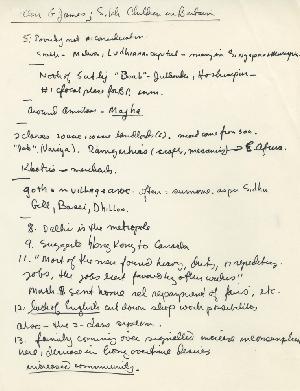 Alan G James; Sikh Children in Britain
5. Society not a consideration
South - Malwa, Ludhiana capital - many in Singapore
North of Sutlej "Doab" - Jullundur, Hoshiarpur -
#1 focal places for B.P. imm.
around Amritsar - Majha
2 classes 20 acre, some landlords (2), most come from 300.
"Jats", (Vaisya). Ramgarhias (crafts, masonry) → E. Africa.
Khatris - merchants.
goth = in village assoc. often = surname, as per Sidhu
Gill, Bassi, Dhillon.
8. Delhi is the metropole
9. suggests Hong Kong to Canada
11. "Most of the men found heavy, dirty, or repetitive
jobs, the jobs least favoured by other workers"
Much $ sent home re repayment of fares, etc.
12. lack of English cut down shop work possibilities
also - the 2-class system.
13. family coming over signalled increase in consumption
here, decrease in long overtime hours
increased community.